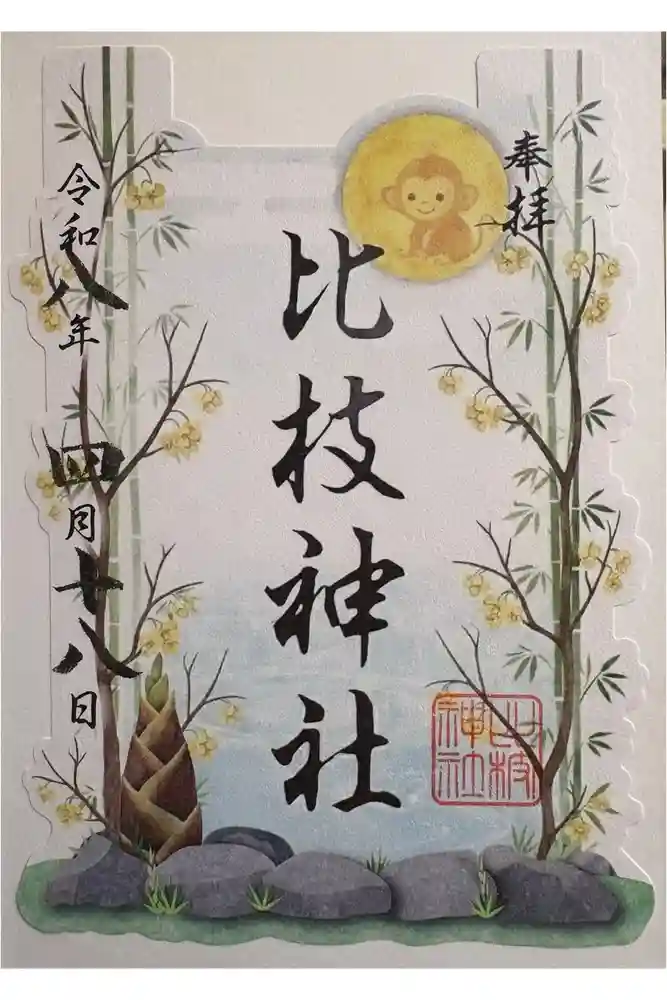 奉拝
比枝神社
比枝神社
令和八年四月十八日